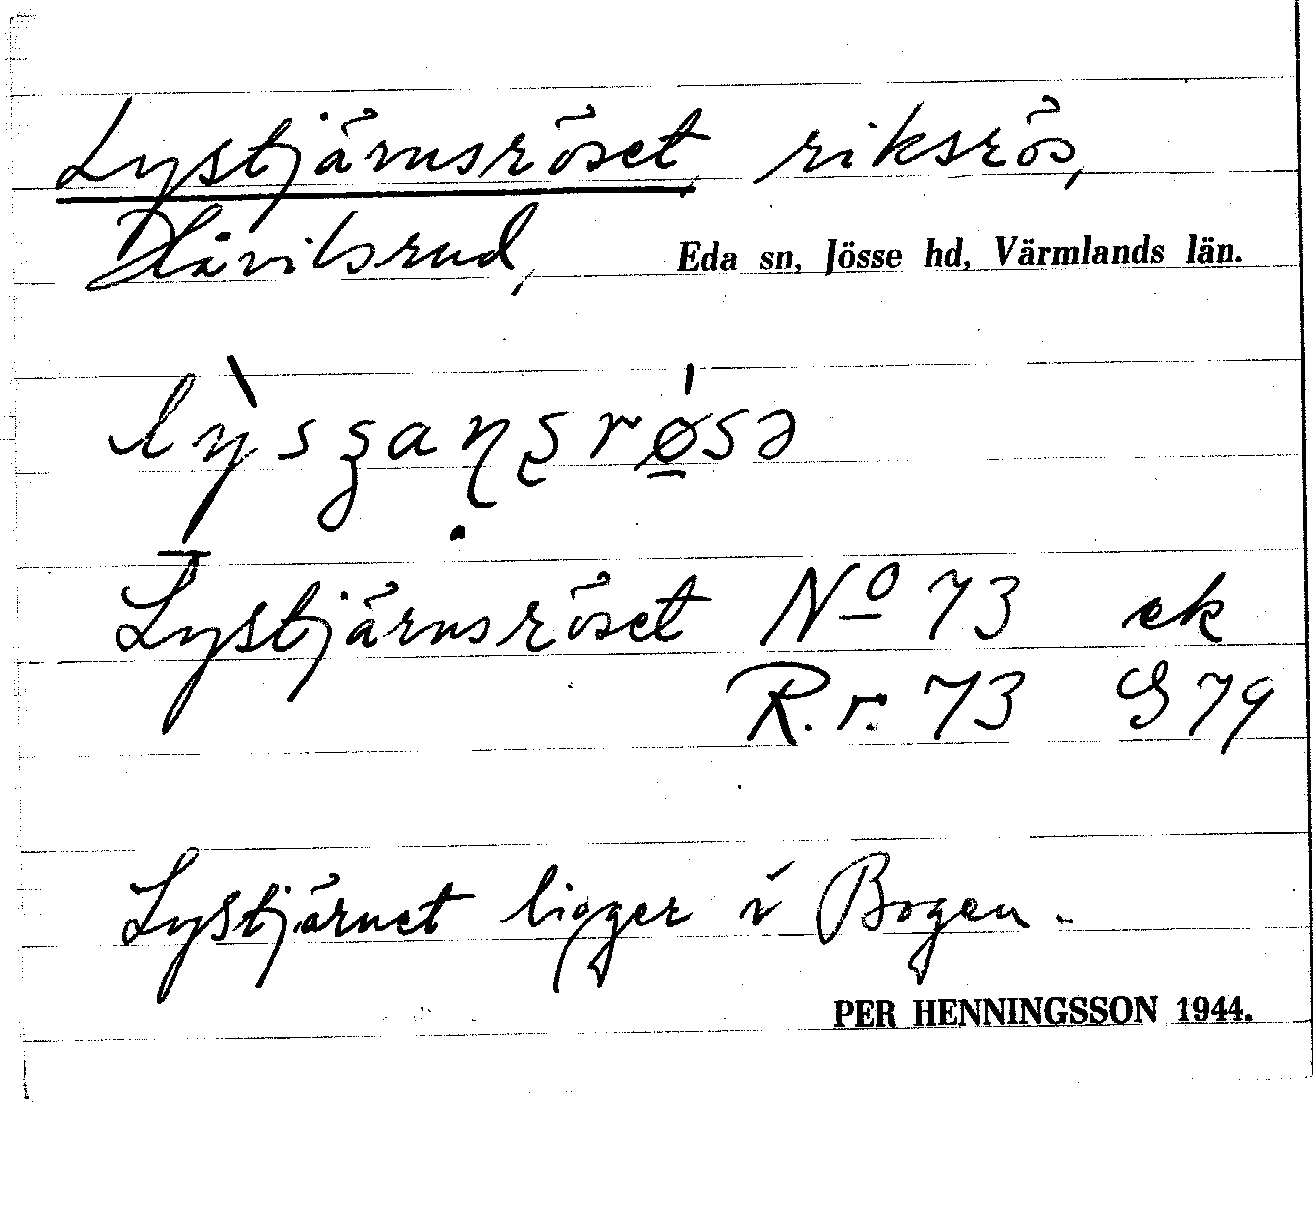 Lystjärnsröset, riksrös,
Håvilsrud, Eda sn, Jösse hd, Värmlands län.
Lystjärnsröset Nº 73 ek
R.r. 73 G 79
Lystjärnet ligger i Bogen.
PER HENNINGSSON 1944.